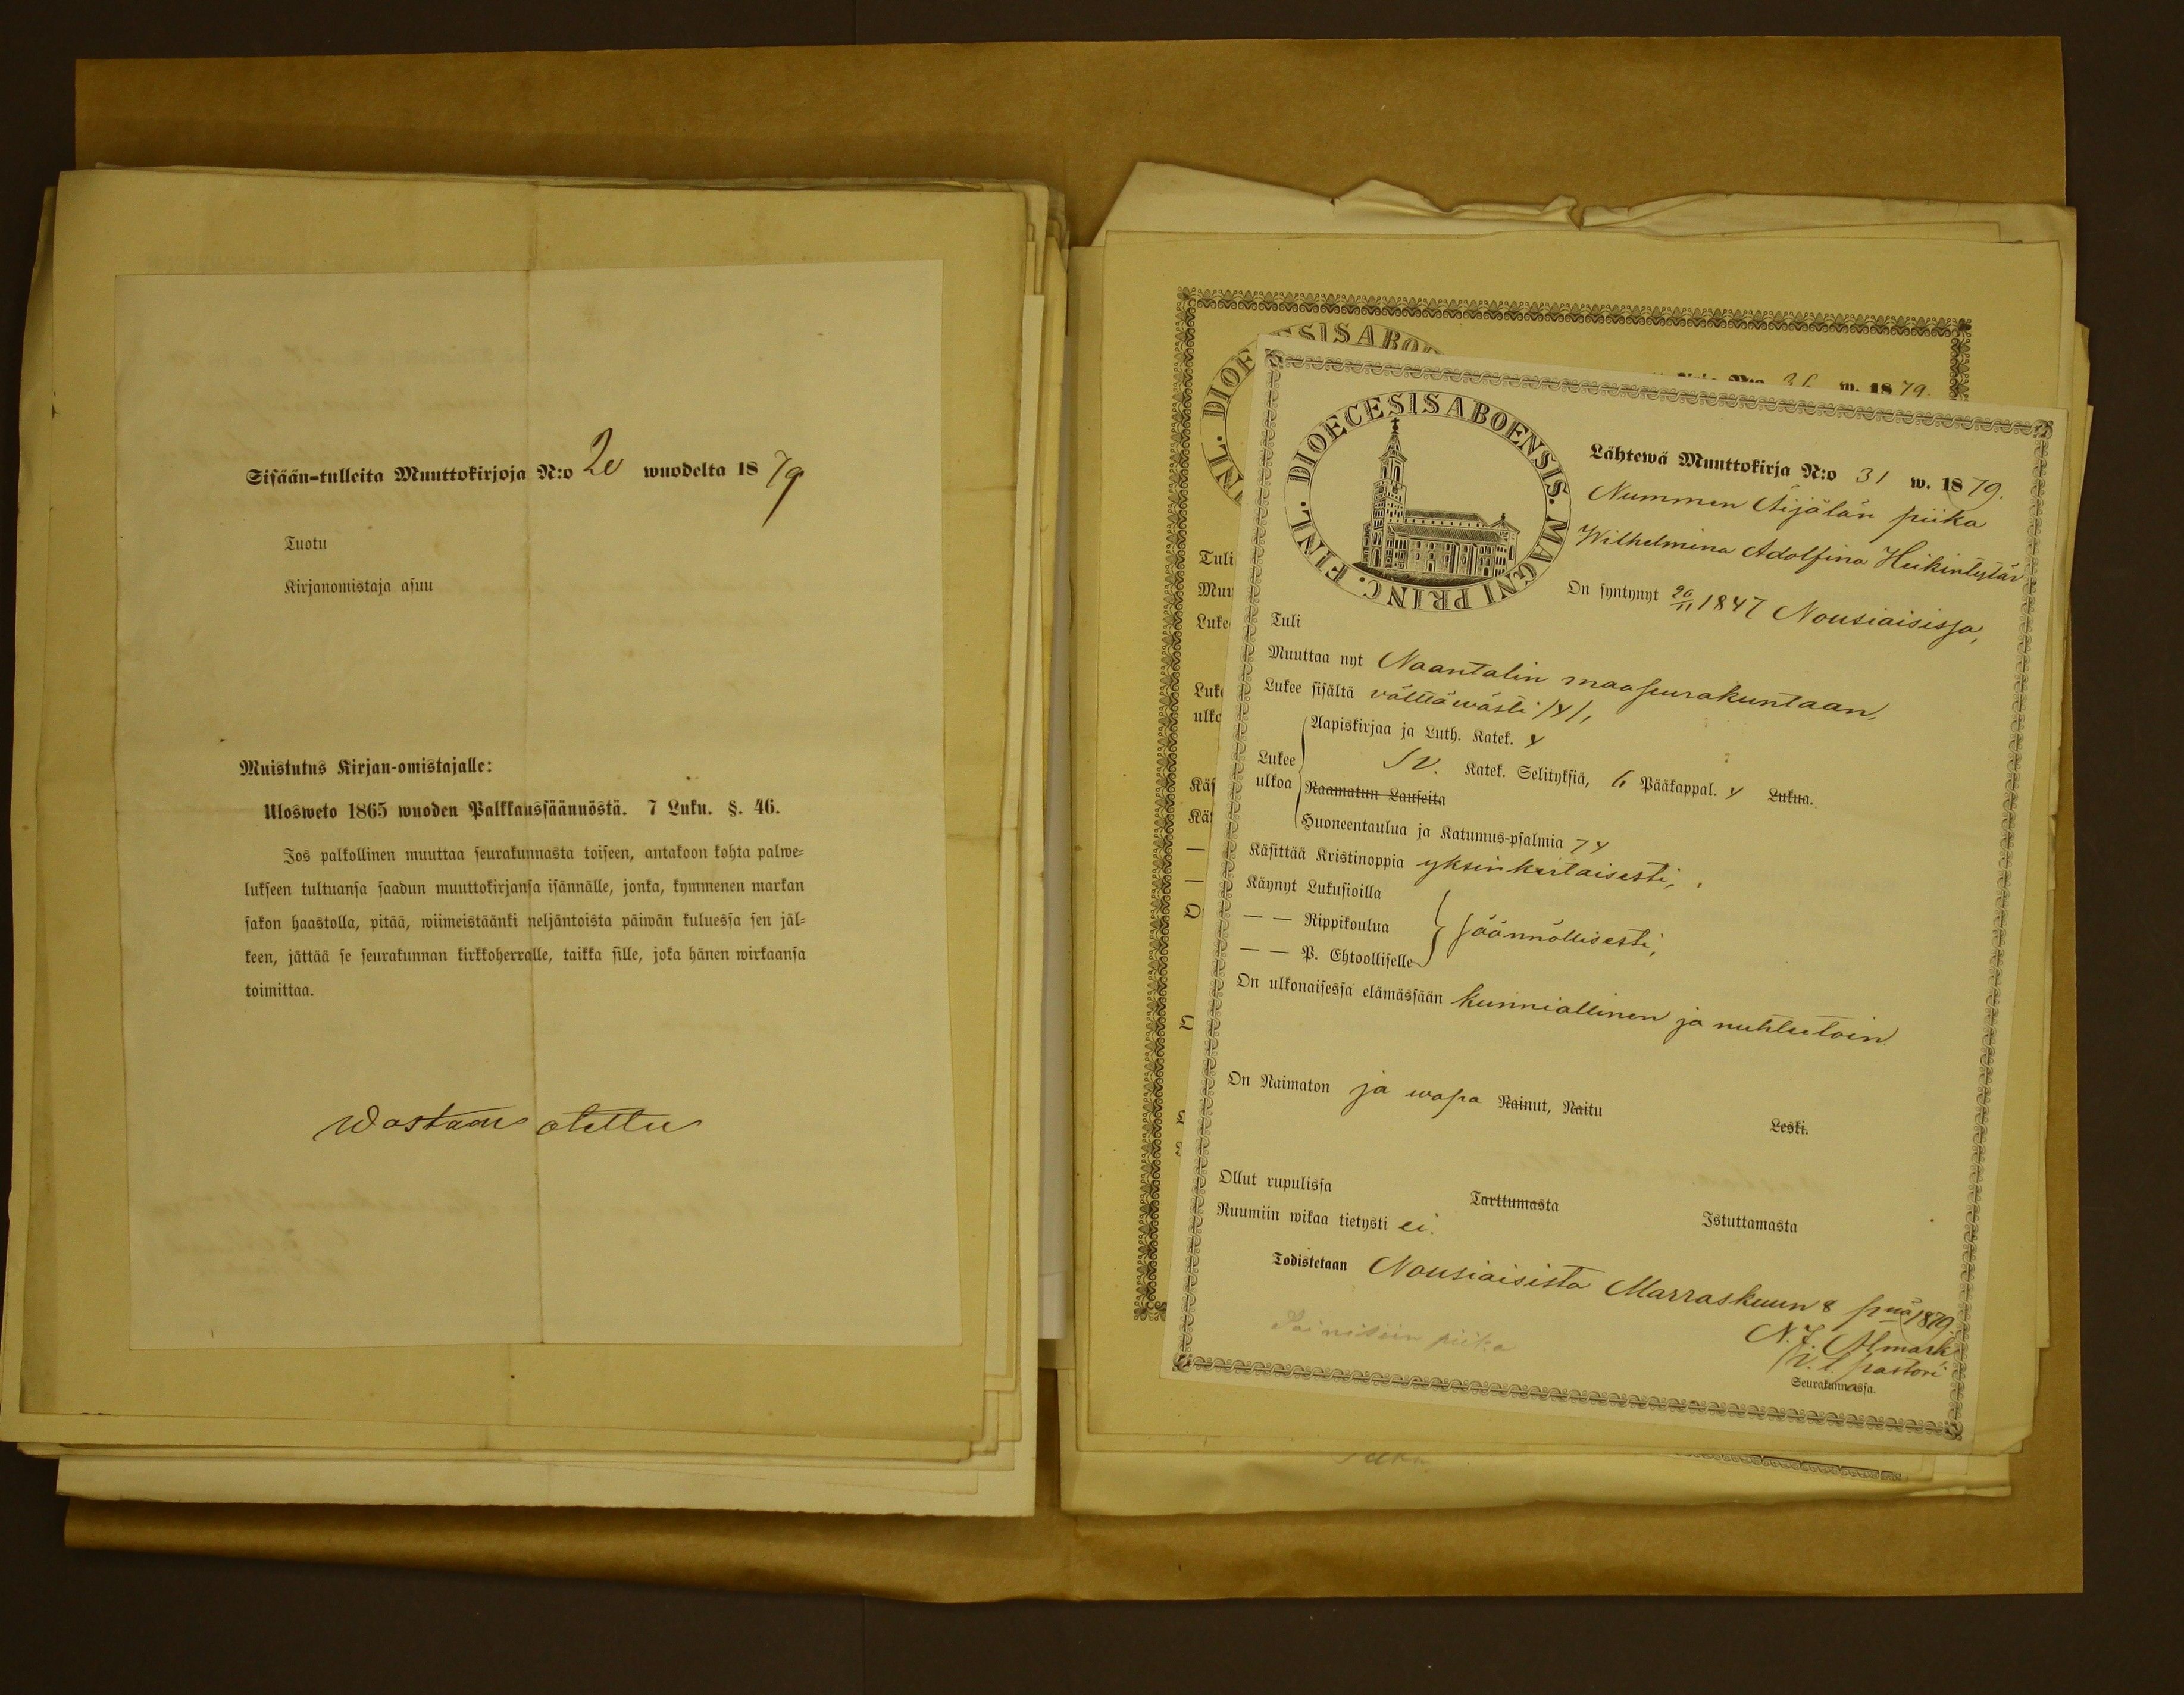 Sisään-tulleita Muuttokirjoja N:o 20 wuodelta 1879
Tuotu
Kirjanomistaja asuu
Muistutus Kirjan-omistajalle:
Ulosweto 1865 wuoden Palkkaussäännöstä. 7 Luku. §. 46.
Jos palkollinen muuttaa seurakunnasta toiseen, antakoon kohta palwe=
lukseen tultuansa saadun muuttokirjansa isännälle, jonka, kymmenen markan
sakon haastolla, pitää, wiimeistäänki neljäntoista päiwän kuluessa sen jäl=
keen, jättää se seurakunnan kirkkoherralle, taikka sille, joka hänen wirkaansa
toimittaa.
Wastaan otettu
w. 1879.
Tuli
DIOECESIS ABOENSIS. MAGNI PRINC. FINL.
Lähtewä Muuttokirja N:o 31 w. 1879.
Nummen Äijälän piika
Wilhelmina Adolfina Heikintytär
On syntynyt 20/11 1847 Nousiaisissa,
Tuli
Muuttaa nyt Naantalin maaseurakuntaan,
Lukee sisältä välttäwästi /4/,
Aapiskirjaa ja Luth. Katek. 4
Lukee ulkoa
Sv. Katek. Selityksiä, 6 Pääkappal. 4 Lukua.
Raamatun Lauseita
Huoneentaulua ja Katumus-psalmia 74
Käsittää Kristinoppia yksinkertaisesti,
Käynyt Lukusioilla
— — Rippikoulua säännöllisesti,
— — P. Ehtoolliselle
On ulkonaisessa elämässään kunniallinen ja nuhteetoin
On Naimaton ja wapa Nainut, Naitu
Leski.
Ollut rupulissa Tarttumasta Istuttamasta
Ruumiin wikaa tietysti ei.
Todistetaan Nousiaisista Marraskuun 8 pnä 1879.
N. J. Almark
V. t. pastori
Seurakunnassa.
piika